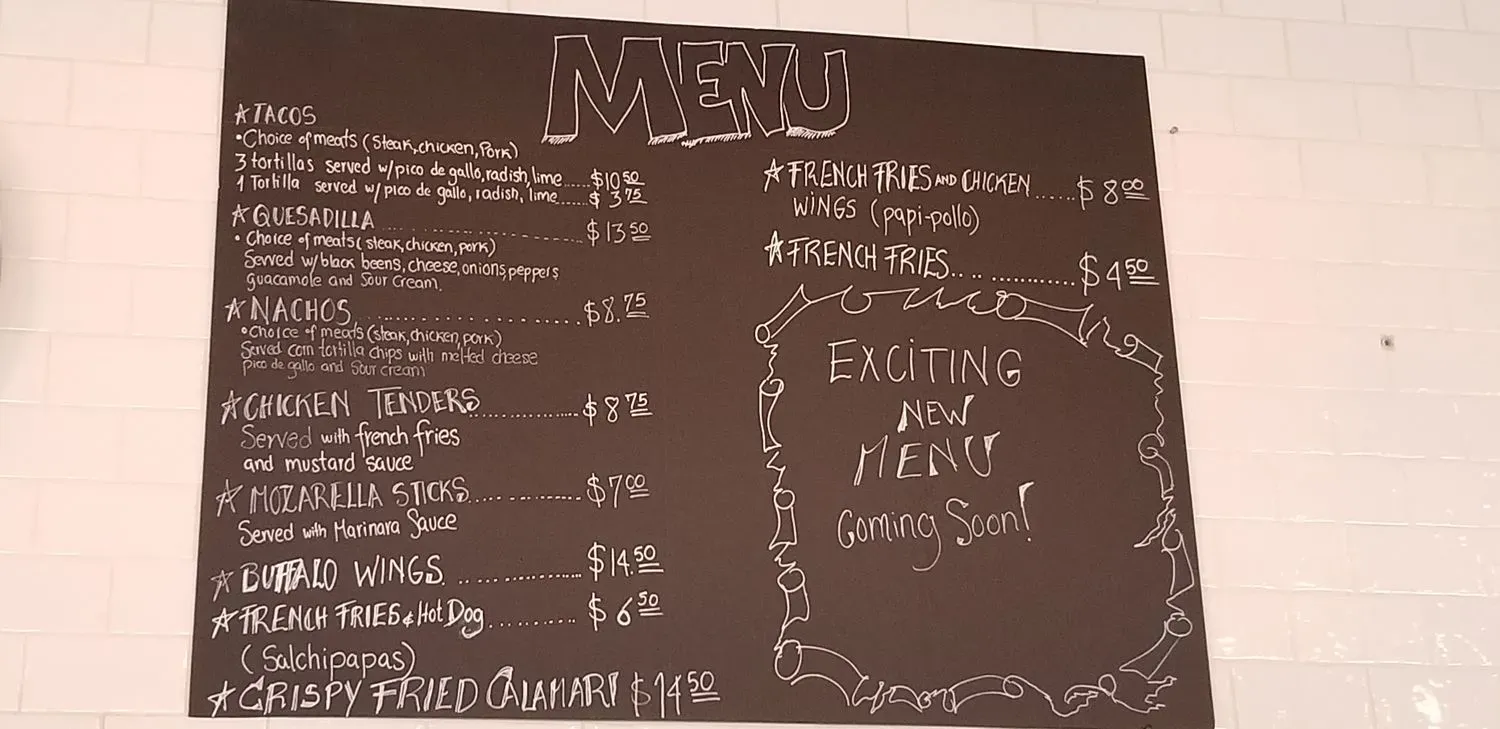 MENU
☆TACOS
•Choice of meats (Steak, chicken, Pork)
3 tortillas served w/pico de gallo, radish, lime.....$10 50
1 Tortilla served w/ pico de gallo, radish, lime......$ 3 75
☆QUESADILLA ........................ $13 50
• Choice of meats (steak, chicken, pork)
Served w/black beens, cheese, onions, peppers
guacamole and sour cream.
☆NACHOS........................$8.75
•Choice of meats (steak, chicken, pork)
Served corn tortilla chips with melted cheese
pico de gallo and sour cream
☆CHICKEN TENDERS..............$8 75
Served with french fries
and mustard sauce
☆MOZARELLA STICKS..............$7 00
Served with Marinara Sauce
☆BUFFALO WINGS. ..............$14.50
☆FRENCH FRIES & Hot Dog..........$ 6 50
(Salchipapas)
☆CRISPY FRIED CALAMARI $14 50
☆FRENCH FRIES AND CHICKEN ......$ 8 00
WINGS (papi-pollo)
☆FRENCH FRIES.... ............$4 50
EXCITING
NEW
MENU
Coming Soon!